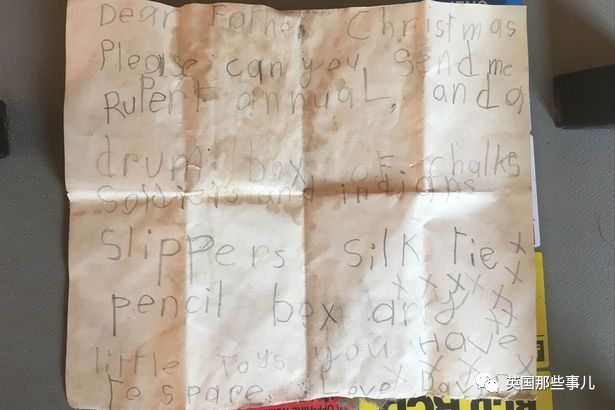 Dear Father Christmas
Please can you send me
RuPert annuaL, and a
drum, box of chalks
Soldiers and indians
Slippers silk tie x
pencil box any x x x x x
little Toys you Have
to spare. Love David
英国那些事儿